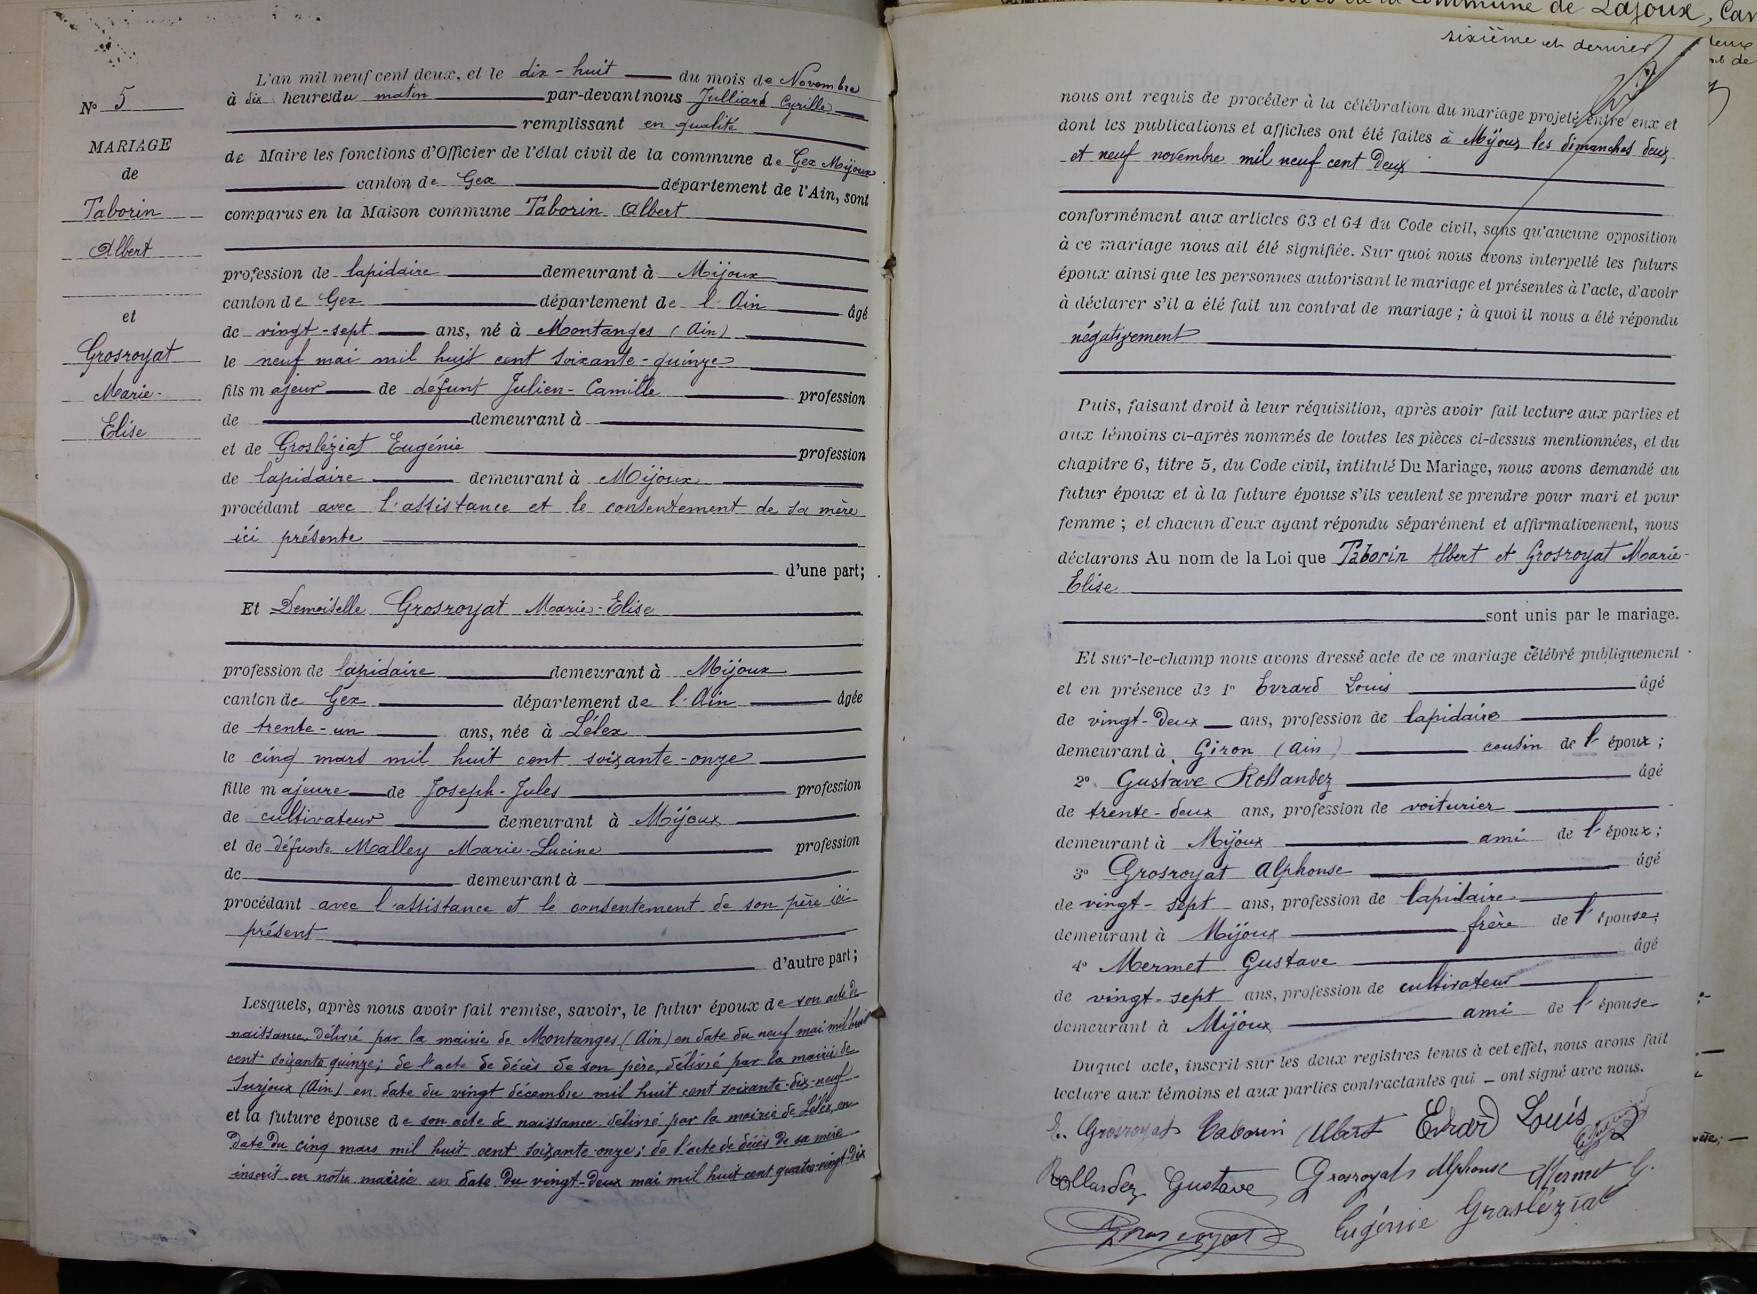 N° 5
MARIAGE
de
Taborin
Albert
et
Grosroyat
Marie-
Elise
L'an mil neuf cent deux, et le dix-huit du mois de Novembre
à dix heures du matin par-devant nous Julliard Cyrille
remplissant en qualité
de Maire les fonctions d'Officier de l'état civil de la commune de Gex Mijoux
canton de Gex département de l'Ain, sont
comparus en la Maison commune Taborin Albert
profession de lapidaire demeurant à Mijoux
canton de Gex département de l'Ain âgé
de vingt-sept ans, né à Montanges (Ain)
le neuf mai mil huit cent soixante-quinze
fils majeur de défunt Julien-Camille profession
de demeurant à
et de Grosléziat Eugénie profession
de lapidaire demeurant à Mijoux
procédant avec l'assistance et le consentement de sa mère
ici présente
d'une part;
Et Demoiselle Grosroyat Marie-Elise
profession de lapidaire demeurant à Mijoux
canton de Gex département de l'Ain âgée
de trente-un ans, née à Lélex
le cinq mars mil huit cent soixante-onze
fille majeure de Joseph-Jules profession
de cultivateur demeurant à Mijoux
et de défunte Malley Marie-Lucine profession
de demeurant à
procédant avec l'assistance et le consentement de son père ici
présent
d'autre part;
Lesquels, après nous avoir fait remise, savoir, le futur époux de son acte de
naissance délivré par la mairie de Montanges (Ain) en date du neuf mai mil huit
cent soixante quinze; de l'acte de décès de son père, délivré par la mairie de
Surjoux (Ain) en date du vingt décembre mil huit cent soixante-dix-neuf
et la future épouse de son acte de naissance délivré par la mairie de Lélex, en
date du cinq mars mil huit cent soixante-onze; de l'acte de décès de sa mère
inscrit en notre mairie en date du vingt-deux mai mil huit cent quatre-vingt-dix
commune de Lajoux,
sixième et dernier
nous ont requis de procéder à la célébration du mariage projeté entre eux et
dont les publications et affiches ont été faites à Mijoux les dimanches deux
et neuf novembre mil neuf cent deux
conformément aux articles 63 et 64 du Code civil, sans qu'aucune opposition
à ce mariage nous ait été signifiée. Sur quoi nous avons interpellé les futurs
époux ainsi que les personnes autorisant le mariage et présentes à l'acte, d'avoir
à déclarer s'il a été fait un contrat de mariage; à quoi il nous a été répondu
négativement
Puis, faisant droit à leur réquisition, après avoir fait lecture aux parties et
aux témoins ci-après nommés de toutes les pièces ci-dessus mentionnées, et du
chapitre 6, titre 5, du Code civil, intitulé Du Mariage, nous avons demandé au
futur époux et à la future épouse s'ils veulent se prendre pour mari et pour
femme; et chacun d'eux ayant répondu séparément et affirmativement, nous
déclarons Au nom de la Loi que Taborin Albert et Grosroyat Marie-
Elise
sont unis par le mariage.
Et sur-le-champ nous avons dressé acte de ce mariage célébré publiquement
et en présence de 1° Evrard Louis âgé
de vingt-deux ans, profession de lapidaire
demeurant à Giron (Ain) cousin de l'époux;
2° Gustave Rollandez âgé
de trente-deux ans, profession de voiturier
demeurant à Mijoux ami de l'époux;
3° Grosroyat Alphonse âgé
de vingt-sept ans, profession de lapidaire
demeurant à Mijoux frère de l'épouse;
4° Mermet Gustave âgé
de vingt-sept ans, profession de cultivateur
demeurant à Mijoux ami de l'épouse
Duquel acte, inscrit sur les deux registres tenus à cet effet, nous avons fait
lecture aux témoins et aux parties contractantes qui ont signé avec nous.
E. Grosroyat Taborin Albert Evrard Louis
Rollandez Gustave Grosroyat Alphonse Mermet G.
Grosroyat Eugénie Grosléziat